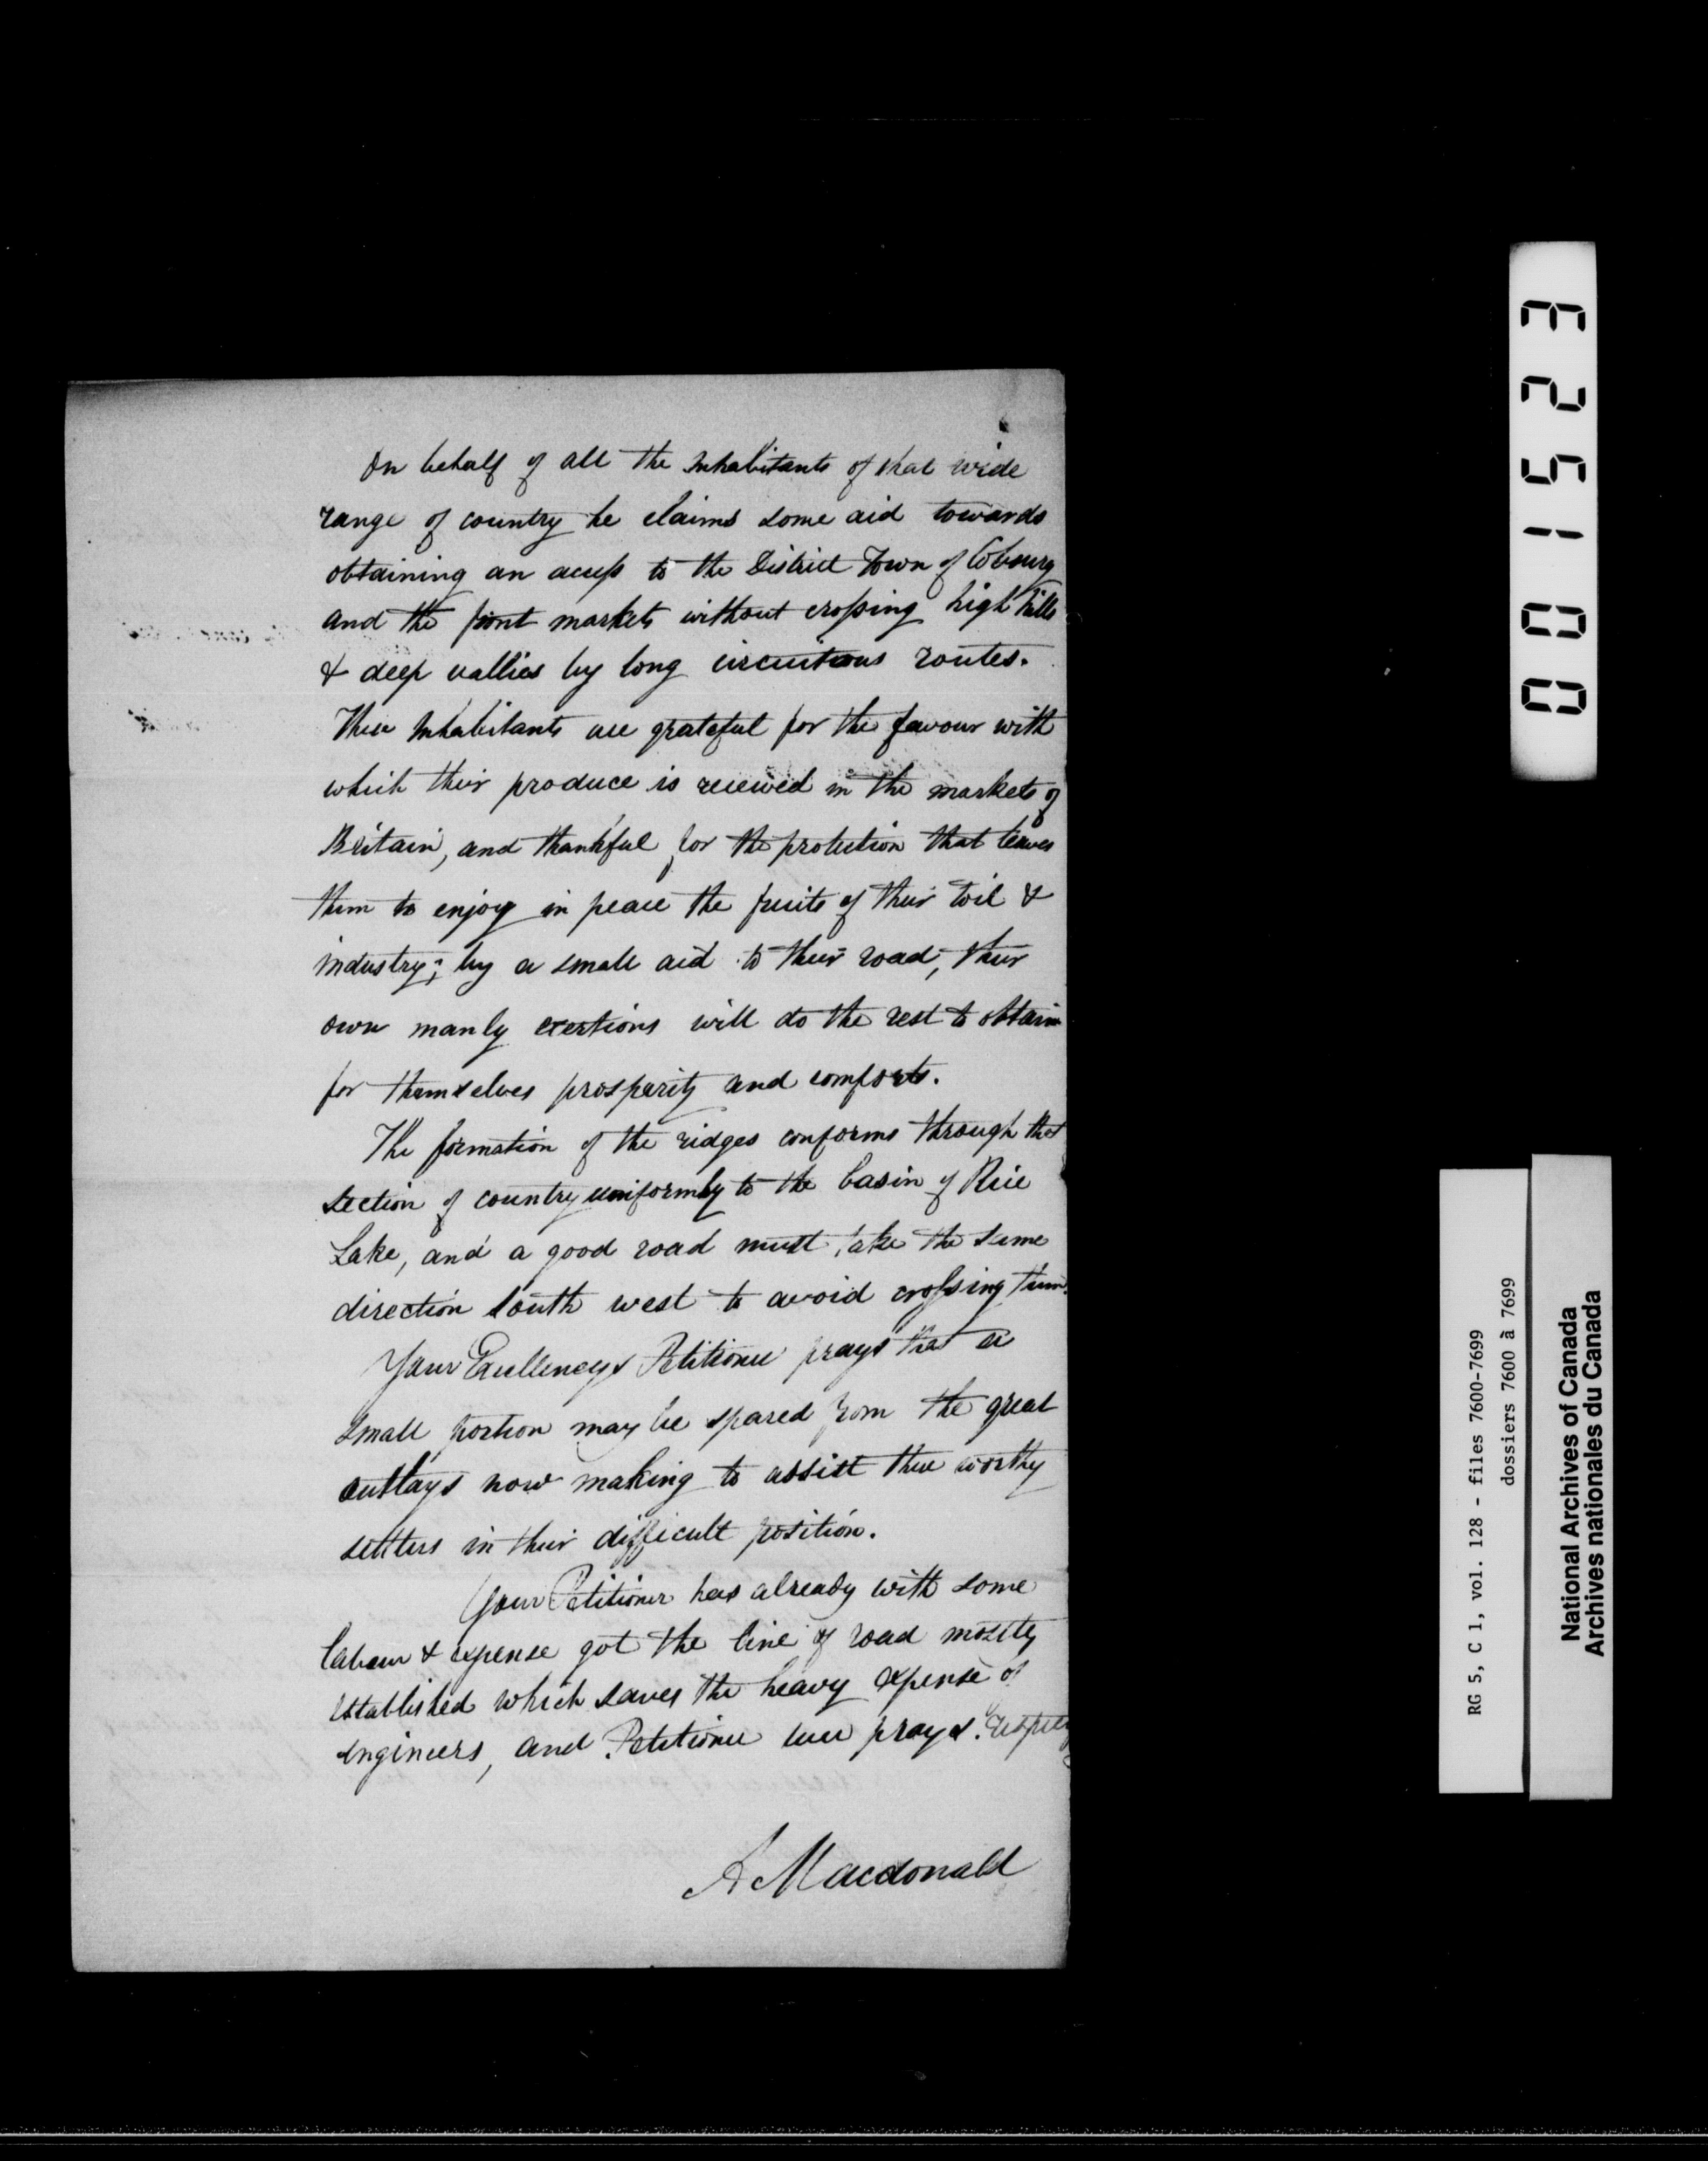 On behalf of all the Inhabitants of that wide
range of country he claims some aid towards
obtaining an access to the District Town of Cobourg
and the front markets without crossing high hills
& deep vallies by long circuitous routes.
These Inhabitants are grateful for the favour with
which their produce is received in the markets of
Britain, and thankful for the protection that leaves
them to enjoy in peace the fruits of their toil &
industry; by a small aid to their road, their
own manly exertions will do the rest to obtain
for themselves prosperity and comforts.
The formation of the ridges conforms through that
section of country uniformly to the basin of Rice
Lake, and a good road must take the same
direction South west to avoid crossing them.
Your Excellencys Petitioner prays that a
small portion may be spared from the great
outlays now making to assist these worthy
settlers in their difficult position.
Your Petitioner has already with some
labour & expense got the line of road mostly
established which saves the heavy expense of
Engineers, and Petitioner ever prays.
A Macdonald
001523
RG 5, C 1, vol. 128 - files 7600-7699
dossiers 7600 à 7699
National Archives of Canada
Archives nationales du Canada